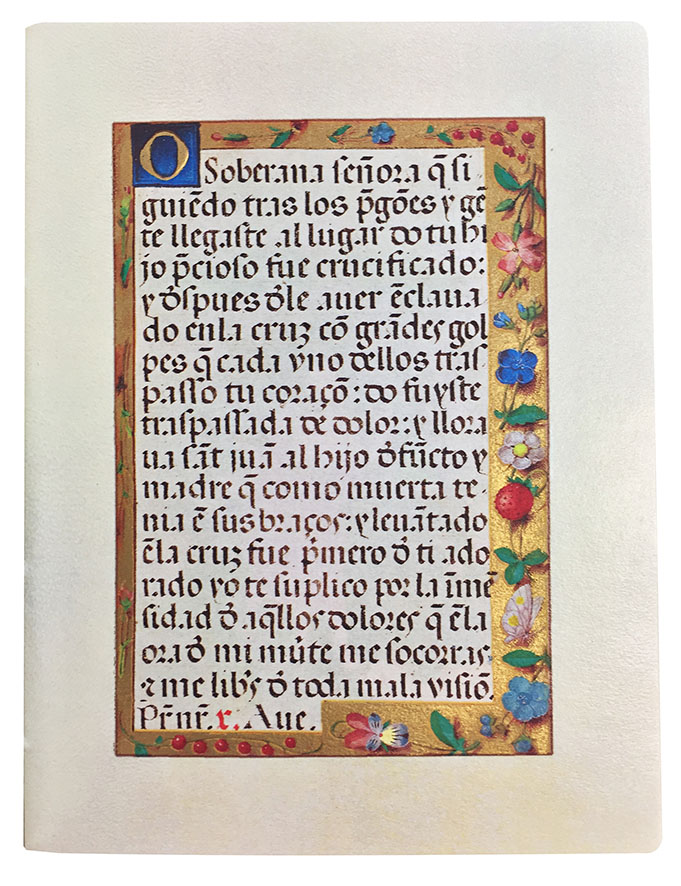 O Soberana señora q̃ si
guiẽdo tras los p̃gões y gẽ
te llegaste al lugar do tu hi
jo p̃cioso fue crucificado:
y d̃spues d̃le auer ẽclaua
do en la cruz cõ grãdes gol
pes q̃ cada vno dellos tras
passo tu coraçõ: do fuyste
traspassada de dolor: y llora
ua sãt juã al hijo d̃fũcto y
madre q̃ como muerta te
nia ẽ sus braços: y leuãtado
ẽla cruz fue p̃mero d̃ ti ado
rado yo te suplico por la ĩmẽ
sidad d̃ aq̃llos dolores q̃ ẽla
ora d̃ mi mũte me socorras
⁊ me lib̃s d̃ toda mala visiõ.
Pr̃ nr̃. x. Aue.